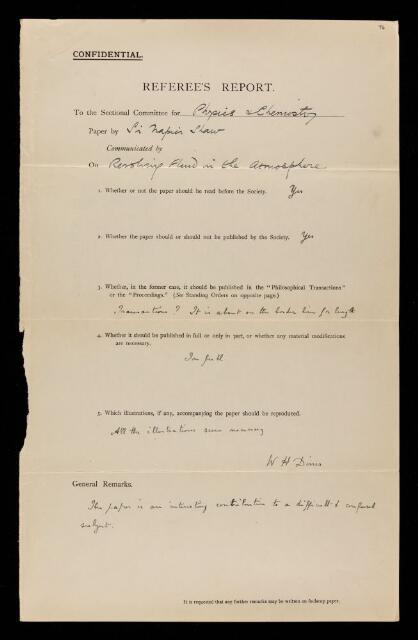 76
CONFIDENTIAL.
REFEREE'S REPORT.
To the Sectional Committee for Physics & Chemistry
Paper by Sir Napier Shaw
Communicated by
On Revolving Fluid in the Atmosphere
1. Whether or not the paper should be read before the Society. Yes
2. Whether the paper should or should not be published by the Society. Yes
3. Whether, in the former case, it should be published in the "Philosophical Transactions"
or the "Proceedings." (See Standing Orders on opposite page.)
Transactions? It is about on the border line for length
4. Whether it should be published in full or only in part, or whether any material modifications
are necessary.
In full
5. Which illustrations, if any, accompanying the paper should be reproduced.
All the illustrations seem necessary
W H Dines
General Remarks.
The paper is an interesting contribution to a difficult & confused
subject.
It is requested that any further remarks may be written on foolscap paper.